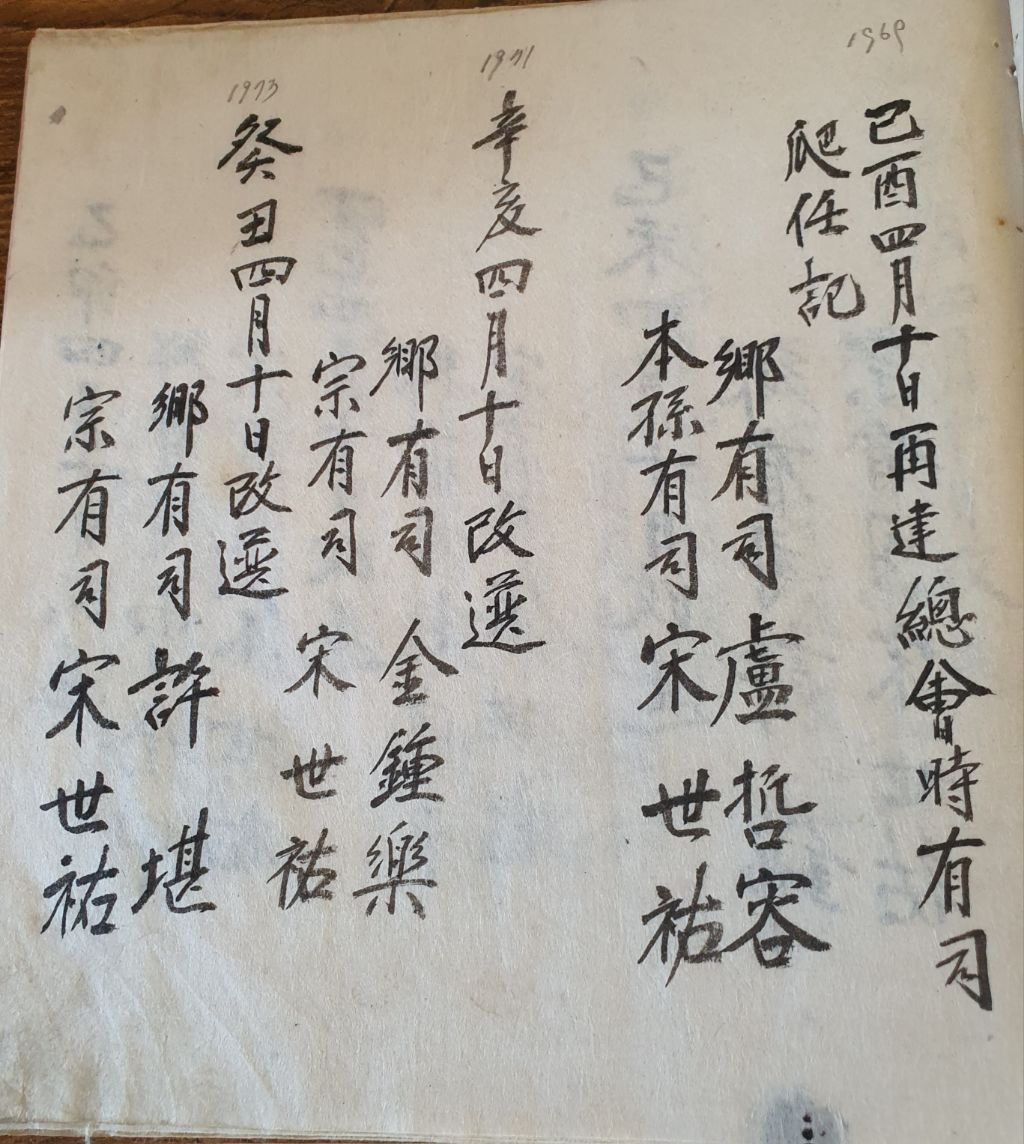 1969
己酉四月十日再建總會時有司
爬任記
鄉有司 盧哲容
本孫有司 宋世祐
1971
辛亥四月十日改選
鄉有司 金鍾樂
宗有司 宋世祐
1973
癸丑四月十日改選
鄉有司 許堪
宗有司 宋世祐